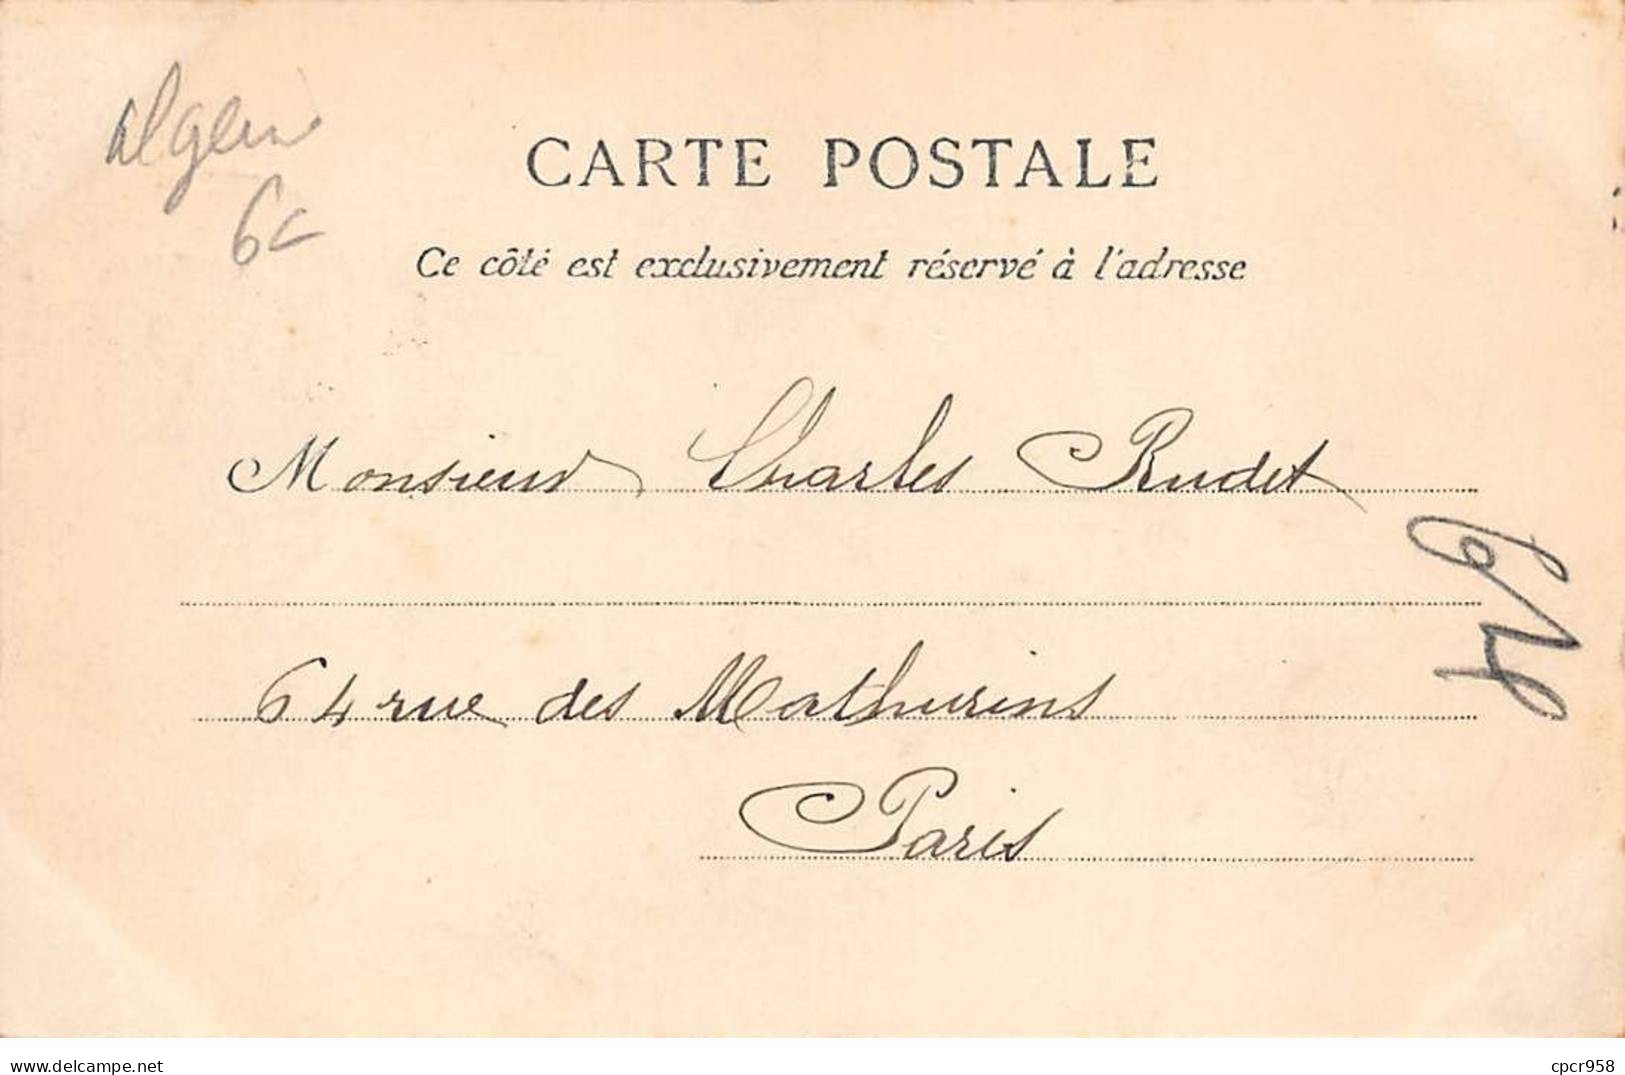 Algerie
6c
CARTE POSTALE
Ce côté est exclusivement réservé à l'adresse
Monsieur Charles Rudet
64 rue des Mathurins
Paris
www.delcampe.net
cpcr958